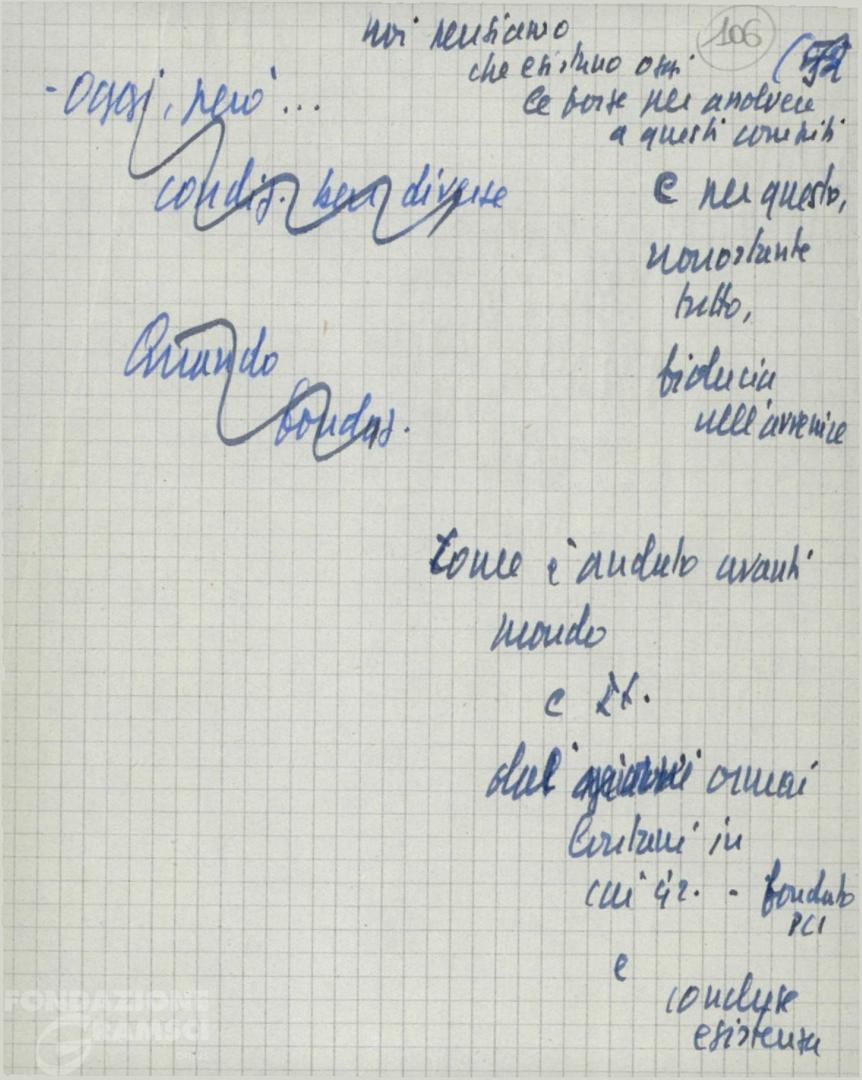 106
noi pensiamo
che esistano oggi
le forze per assolvere
a questi compiti
- Oggi, però...
condiz. ben diverse
e per questo,
nonostante
tutto,
fiducia
nell'avvenire
Quando
fondaz.
Come è andato avanti
mondo
e It.
dai ormai
lontani in
cui - fondato
PCI
e
concluse
esistenza
FONDAZIONE
GRAMSCI